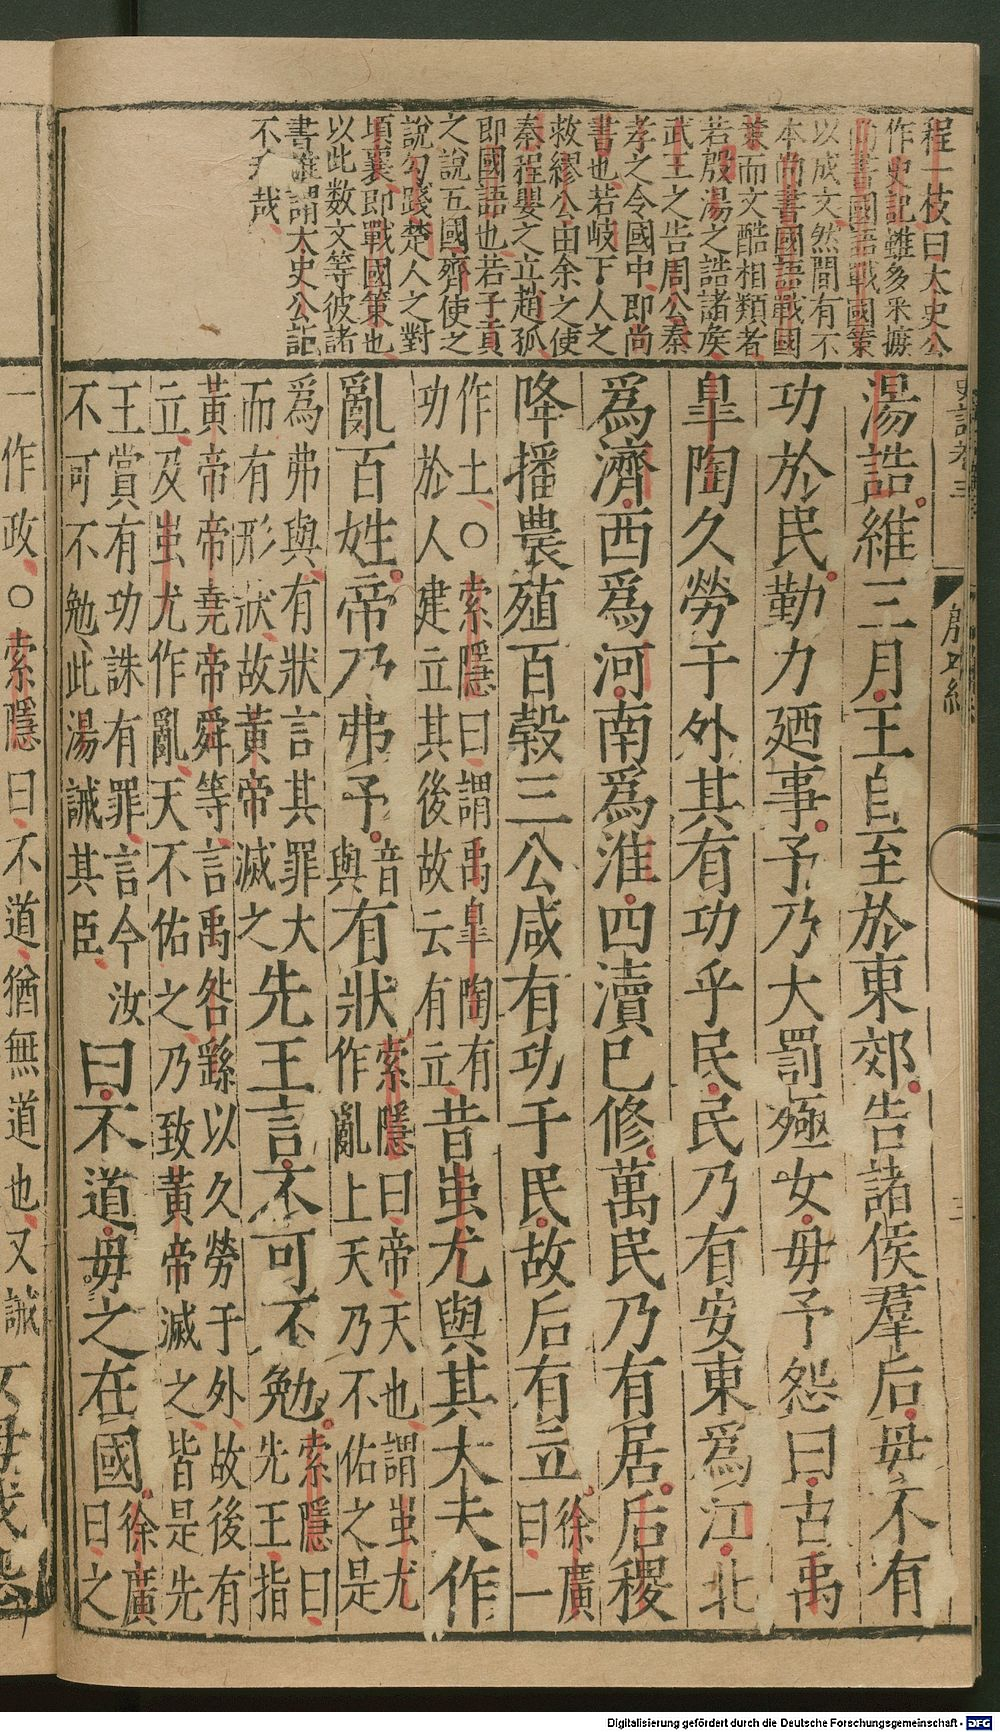 程一枝曰太史公
作史記雖多采摭
尚書國語戰國策
以成文然間有不
本尚書國語戰國
策而文酷相類者
若殷湯之誥諸侯
武王之告周公秦
孝之令國中即尚
書也若岐下人之
救繆公由余之使
秦程嬰之立趙孤
即國語也若子貢
之說五國齊使之
說勾踐楚人之對
項襄即戰國策也
以此数文等彼諸
書誰謂太史公記
不
哉
史記卷三
殷本紀
三
湯誥維三月王自至於東郊告諸侯羣后毋不有
功於民勤力廼事予乃大罰殛女毋予怨曰古禹
皐陶久勞于外其有功乎民民乃有安東爲江北
爲濟西爲河南爲淮四瀆已修萬民乃有居后稷
降播農殖百穀三公咸有功于民故后有立徐廣曰一
作土○索隱曰謂禹皐陶有功於人建立其後故云有立昔蚩尤與其大夫作
亂百姓帝乃弗予音與有狀索隱曰帝天也謂蚩尤作亂上天乃不佑之是
爲弗與有狀言其罪大而有形狀故黃帝滅之先王言不可不勉索隱曰先王指
黃帝帝堯帝舜等言禹咎繇以久勞于外故後有立及蚩尤作亂天不佑之乃致黃帝滅之皆是先
王賞有功誅有罪言今汝不可不勉此湯誡其臣曰不道毋之在國徐廣曰之
一作政○索隱曰不道猶無道也又誡
Digitalisierung gefördert durch die Deutsche Forschungsgemeinschaft - DFG